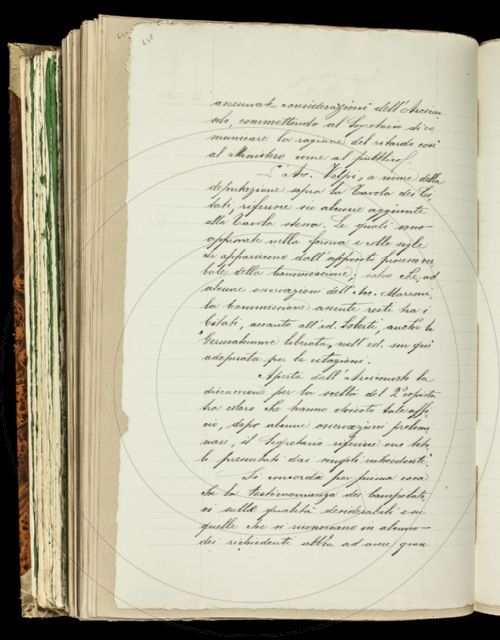 accennate considerazioni dell'Arcicon-
solo, commettendo al Segretario di co-
municare la ragione del ritardo così
al Ministero come al pubblico.
L'Acc. Volpi, a nome della
deputazione sopra la Tavola dei Ci-
tati, riferisce su alcune aggiunte
alla Tavola stessa. Le quali sono
approvate nella forma e colle sigle
che appariscono dall'apposito processo ver-
bale della Commissione, salvo che, ad
alcune osservazioni dell'Acc. Mazzoni,
la Commissione assente resti tra i
Citati, accanto all'ed. Solerti, anche la
Gerusalemme liberata, nell'ed. sin qui
adoperata per le citazioni.
Aperta dall'Arciconsolo la
discussione per la scelta del 2° copista
tra coloro che hanno chiesto tale uffi-
cio, dopo alcune osservazioni prelimi-
nari, il Segretario riferisce sui tito-
li presentati dai singoli richiedenti.
Si concorda per prima cosa
che la testimonianza dei compilatori
sulle qualità desiderabili e su
quelle che si riconoscano in alcuno
dei richiedenti abbia ad avere gran